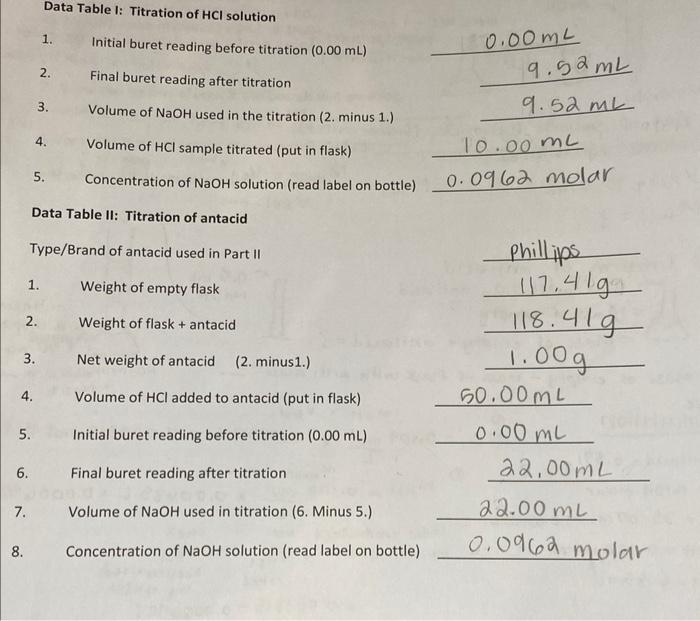 Data Table I: Titration of HCl solution
1. Initial buret reading before titration (0.00 mL) 0.00 mL
2. Final buret reading after titration 9.52 mL
3. Volume of NaOH used in the titration (2. minus 1.) 9.52 mL
4. Volume of HCl sample titrated (put in flask) 10.00 mL
5. Concentration of NaOH solution (read label on bottle) 0.0962 molar
Data Table II: Titration of antacid
Type/Brand of antacid used in Part II Phillips
1. Weight of empty flask 117.41g
2. Weight of flask + antacid 118.41g
3. Net weight of antacid (2. minus1.) 1.00g
4. Volume of HCl added to antacid (put in flask) 50.00 mL
5. Initial buret reading before titration (0.00 mL) 0.00 mL
6. Final buret reading after titration 22.00 mL
7. Volume of NaOH used in titration (6. Minus 5.) 22.00 mL
8. Concentration of NaOH solution (read label on bottle) 0.0962 molar